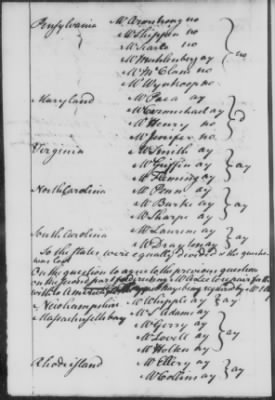 Pensylvania Mr Armstrong no
Mr Shippen no
Mr Searle no } no
Mr Muhlenberg ay
Mr McClene no
Mr Wynkoop no
Maryland Mr Paca ay
Mr Carmichael ay } d
Mr Henry no
Mr Jenifer no
Virginia Mr Smith ay
Mr Griffin ay } ay
Mr Fleming ay
North Carolina Mr Penn ay
Mr Burke ay } ay
Mr Sharpe ay
South Carolina Mr Laurens ay } ay
Mr Drayton ay
So the states were equally divided & the question
was lost
On the question to agree to the previous question
on the second part
with to America being required by Mr
Newhampshire Mr Whipple ay } ay
Massachusetts bay Mr S Adams ay
Mr Gerry ay } ay
Mr Lovell ay
Mr Holten ay
Rhode island Mr Ellery ay } ay
Mr Collins ay